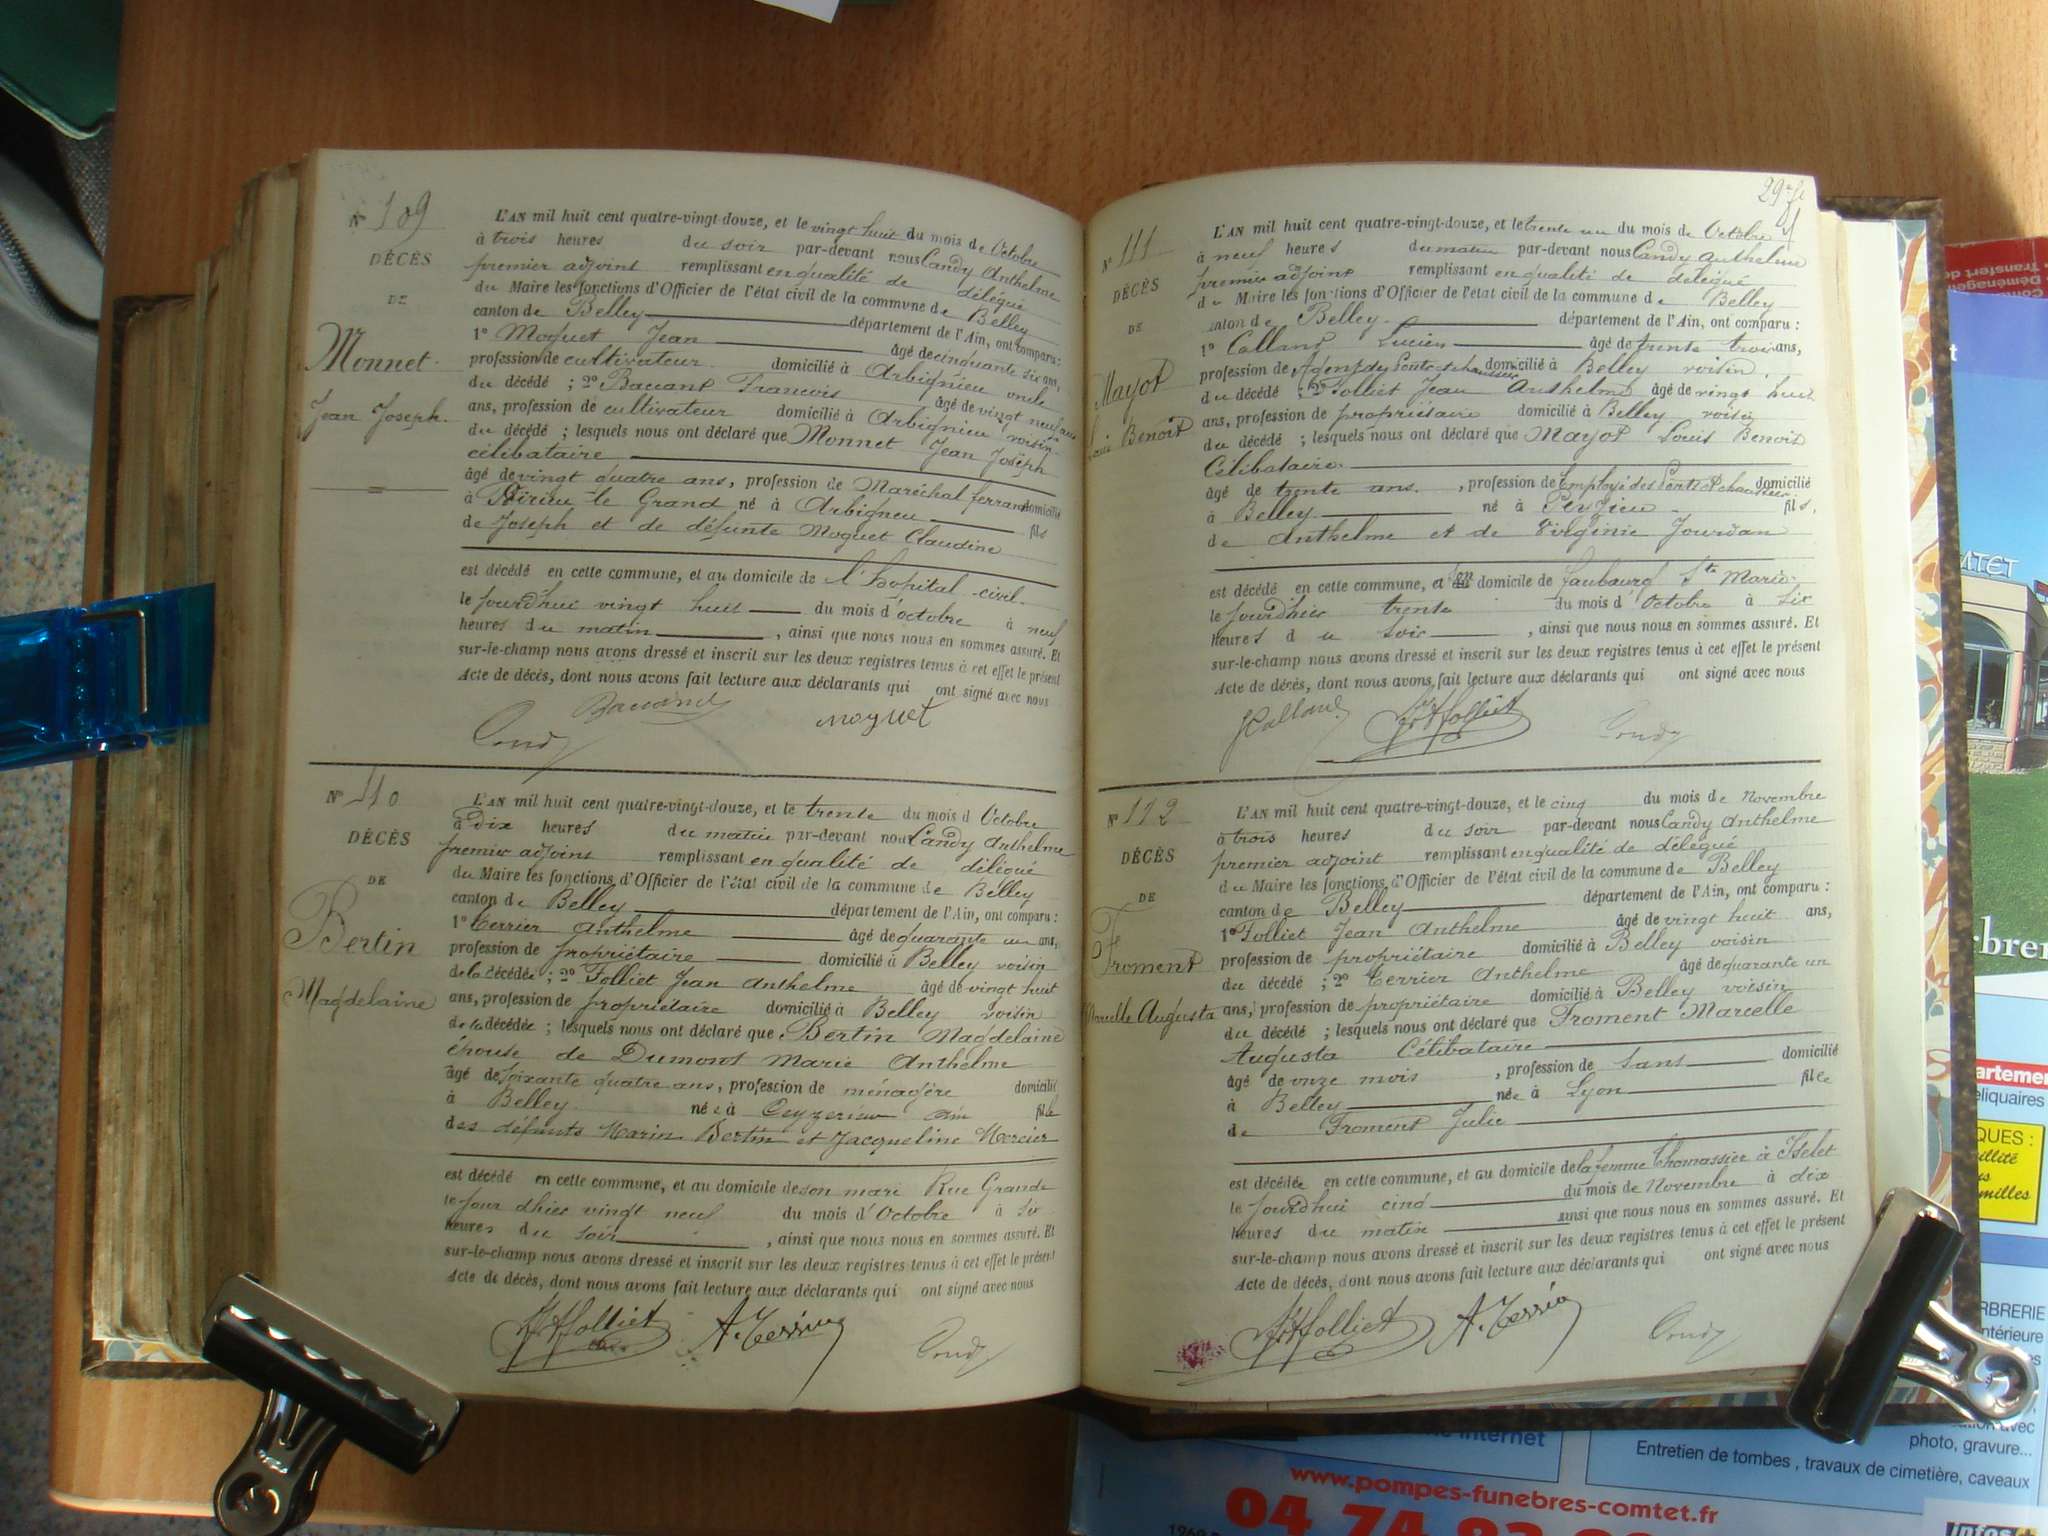 N° 109
DÉCÈS
DE
Monnet
Jean Joseph
L'AN mil huit cent quatre-vingt-douze, et le vingt huit du mois de Octobre
à trois heures du soir par-devant nous Candy Anthelme
premier adjoint remplissant en qualité de délégué
du Maire les fonctions d'Officier de l'état civil de la commune de Belley
canton de Belley département de l'Ain, ont comparu :
1° Moguet Jean âgé de cinquante six ans,
profession de cultivateur domicilié à Arbignieu oncle
du décédé ; 2° Baccand Francois âgé de vingt neuf ans
ans, profession de cultivateur domicilié à Arbignieu voisin
du décédé ; lesquels nous ont déclaré que Monnet Jean Joseph
célibataire
âgé de vingt quatre ans, profession de Maréchal ferrant domicilié
à Virieu le Grand né à Arbigneu fils
de Joseph et de défunte Moguet Claudine
est décédé en cette commune, et au domicile de l'hopital civil
le jourdhui vingt huit du mois d'octobre à neuf
heures du matin, ainsi que nous nous en sommes assuré. Et
sur-le-champ nous avons dressé et inscrit sur les deux registres tenus à cet effet le présent
Acte de décès, dont nous avons fait lecture aux déclarants qui ont signé avec nous
Baccand moguet
Candy
N° 110
DÉCÈS
DE
Bertin
Magdelaine
L'AN mil huit cent quatre-vingt-douze, et le trente du mois d Octobre
à dix heures du matin par-devant nous Candy Anthelme
premier adjoint remplissant en qualité de délégué
du Maire les fonctions d'Officier de l'état civil de la commune de Belley
canton de Belley département de l'Ain, ont comparu :
1° Terrier Anthelme âgé de quarante un ans,
profession de propriétaire domicilié à Belley voisin
de la décédée ; 2° Folliet Jean Anthelme âgé de vingt huit
ans, profession de propriétaire domicilié à Belley voisin
de la décédée ; lesquels nous ont déclaré que Bertin Magdelaine
épouse de Dumont Marie Anthelme
âgé de soixante quatre ans, profession de ménagère domicilié
à Belley née à Ceyzerieu Ain fille
des défunts Marin Bertin et Jacqueline Mercier
est décédé en cette commune, et au domicile de son mari Rue Grande
le jour dhier vingt neuf du mois d'Octobre à six
heures du soir, ainsi que nous nous en sommes assuré. Et
sur-le-champ nous avons dressé et inscrit sur les deux registres tenus à cet effet le présent
Acte de décès, dont nous avons fait lecture aux déclarants qui ont signé avec nous
JA Folliet A. Terrier Candy
29
N° 111
DÉCÈS
DE
Mayot
Louis Benoit
L'AN mil huit cent quatre-vingt-douze, et le trente un du mois de Octobre
à neuf heures du matin par-devant nous Candy Anthelme
premier adjoint remplissant en qualité de délégué
du Maire les fonctions d'Officier de l'état civil de la commune de Belley
canton de Belley département de l'Ain, ont comparu :
1° Calland Lucien âgé de trente trois ans,
profession de Agent des Ponts et chaussées domicilié à Belley voisin
du décédé ; 2° Folliet Jean Anthelme âgé de vingt huit
ans, profession de propriétaire domicilié à Belley voisin
du décédé ; lesquels nous ont déclaré que Mayot Louis Benoit
Célibataire
âgé de trente ans, profession de Employé des Ponts et chaussées domicilié
à Belley né à Peyzieu fils,
de Anthelme et de Virginie Jourdan
est décédé en cette commune, et son domicile de Faubourg Ste Marie
le jourdhier trente du mois d'Octobre à six
heures du soir, ainsi que nous nous en sommes assuré. Et
sur-le-champ nous avons dressé et inscrit sur les deux registres tenus à cet effet le présent
Acte de décès, dont nous avons fait lecture aux déclarants qui ont signé avec nous
Calland JA Folliet Candy
N° 112
DÉCÈS
DE
Froment
Marcelle Augusta
L'AN mil huit cent quatre-vingt-douze, et le cinq du mois de Novembre
à trois heures du soir par-devant nous Candy Anthelme
premier adjoint remplissant en qualité de délégué
du Maire les fonctions d'Officier de l'état civil de la commune de Belley
canton de Belley département de l'Ain, ont comparu :
1° Folliet Jean Anthelme âgé de vingt huit ans,
profession de propriétaire domicilié à Belley voisin
du décédé ; 2° Terrier Anthelme âgé de quarante un
ans, profession de propriétaire domicilié à Belley voisin
du décédé ; lesquels nous ont déclaré que Froment Marcelle
Augusta Célibataire
âgé de onze mois, profession de sans domicilié
à Belley née à Lyon fille
de Froment Julie
est décédée en cette commune, et au domicile de la femme Thomassier à Iselet
le jourdhui cinq du mois de Novembre à dix
heures du matin ainsi que nous nous en sommes assuré. Et
sur-le-champ nous avons dressé et inscrit sur les deux registres tenus à cet effet le présent
Acte de décès, dont nous avons fait lecture aux déclarants qui ont signé avec nous
JA Folliet A. Terrier Candy
photo, gravure...
Entretien de tombes, travaux de cimetière, caveaux
internet
www.pompes-funebres-comtet.fr
04 74